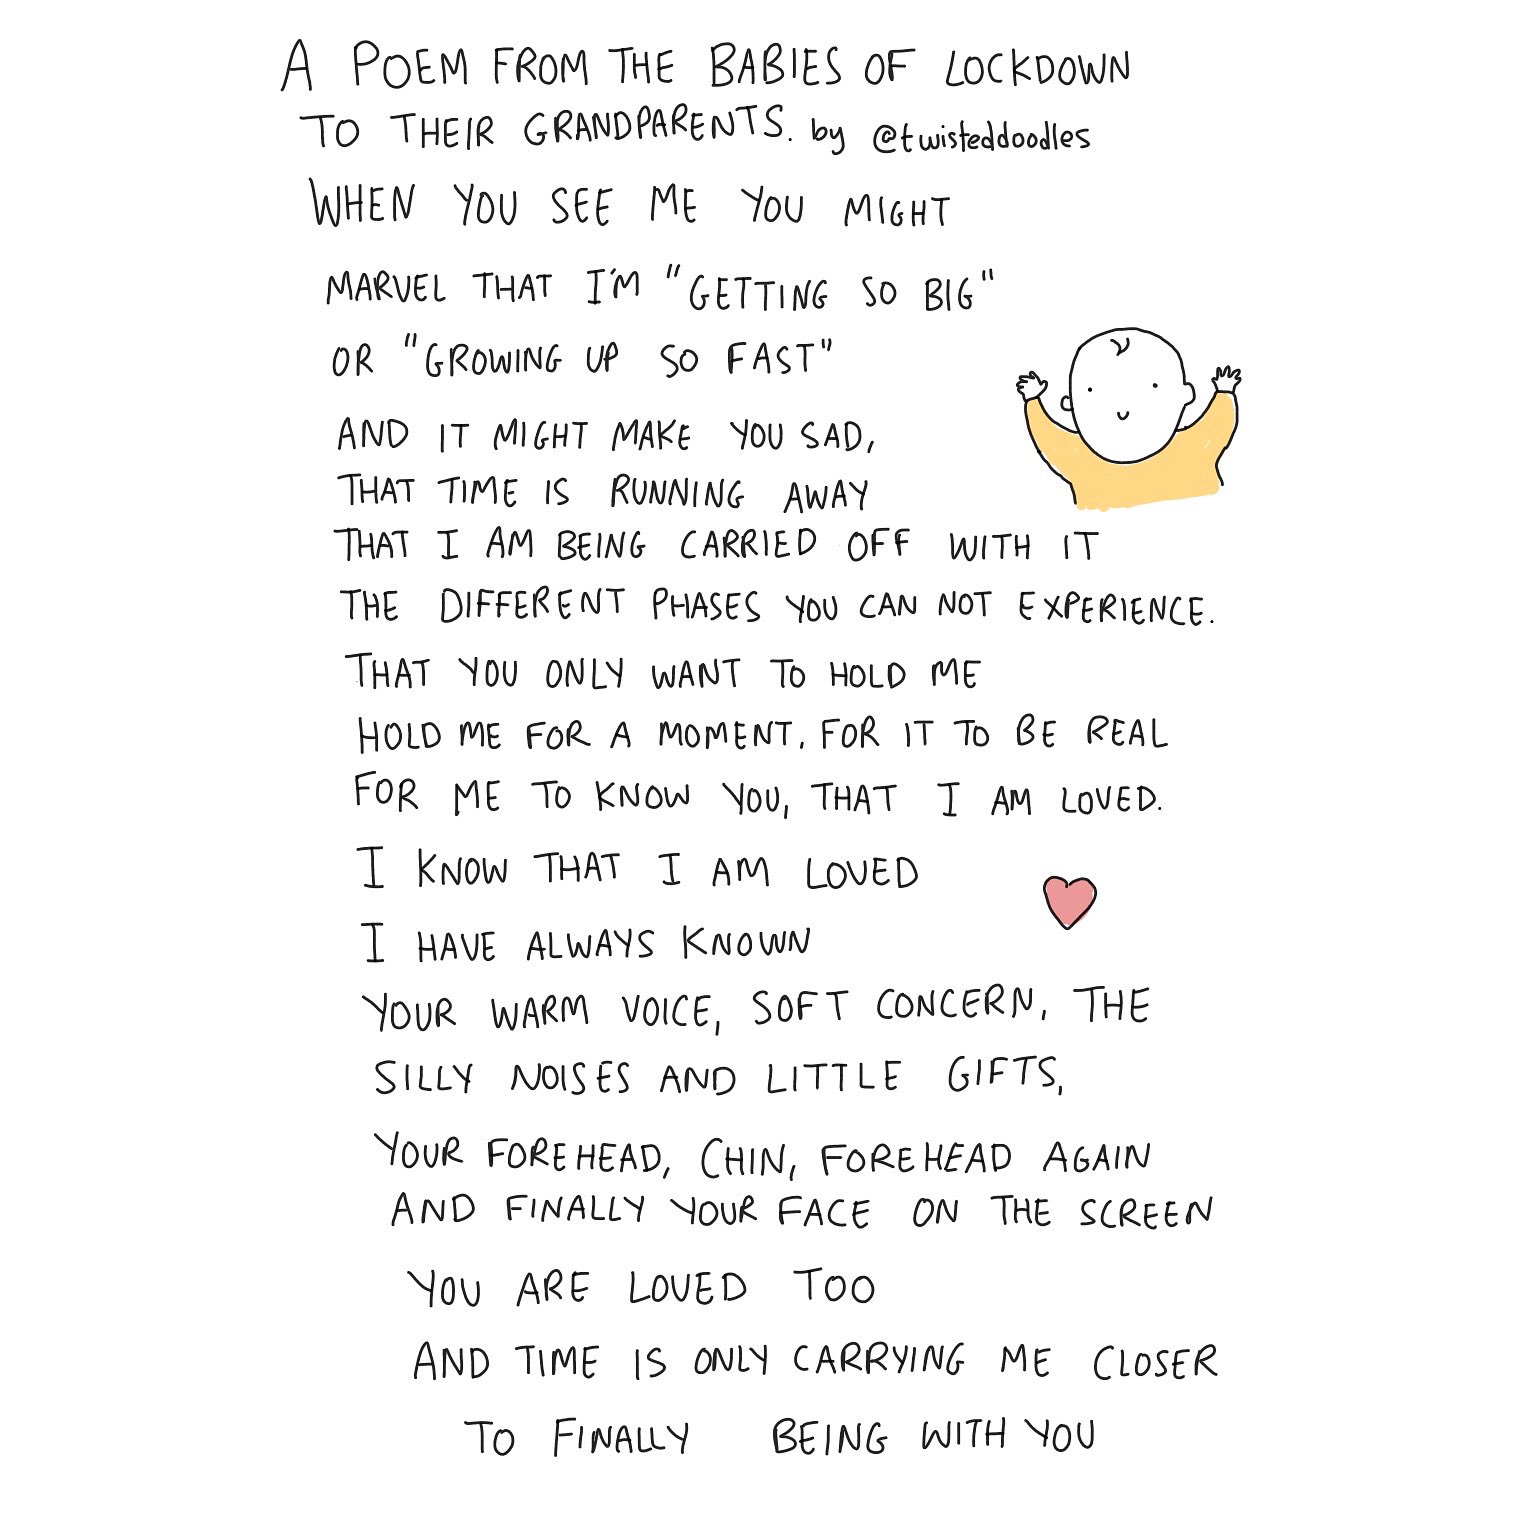 A POEM FROM THE BABIES OF LOCKDOWN
TO THEIR GRANDPARENTS. by @twisteddoodles
WHEN YOU SEE ME YOU MIGHT
MARVEL THAT I'M "GETTING SO BIG"
OR "GROWING UP SO FAST"
AND IT MIGHT MAKE YOU SAD,
THAT TIME IS RUNNING AWAY
THAT I AM BEING CARRIED OFF WITH IT
THE DIFFERENT PHASES YOU CAN NOT EXPERIENCE.
THAT YOU ONLY WANT TO HOLD ME
HOLD ME FOR A MOMENT, FOR IT TO BE REAL
FOR ME TO KNOW YOU, THAT I AM LOVED.
I KNOW THAT I AM LOVED
I HAVE ALWAYS KNOWN
YOUR WARM VOICE, SOFT CONCERN, THE
SILLY NOISES AND LITTLE GIFTS,
YOUR FOREHEAD, CHIN, FOREHEAD AGAIN
AND FINALLY YOUR FACE ON THE SCREEN
YOU ARE LOVED TOO
AND TIME IS ONLY CARRYING ME CLOSER
TO FINALLY BEING WITH YOU